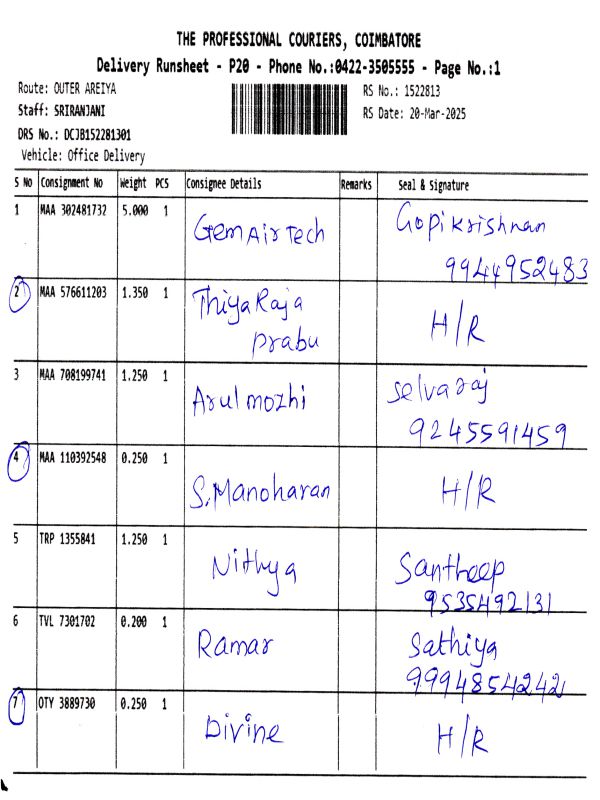 THE PROFESSIONAL COURIERS, COIMBATORE
Delivery Runsheet - P20 - Phone No.:0422-3505555 - Page No.:1
Route: OUTER AREIYA
RS No.: 1522813
Staff: SRIRANJANI
RS Date: 20-Mar-2025
DRS No.: DCJB152281301
Vehicle: Office Delivery
S No Consignment No Weight PCS Consignee Details Remarks Seal & Signature
1 MAA 302481732 5.000 1 Gem Air Tech Gopi Krishnan
9944952483
2 MAA 576611203 1.350 1 Thiya Raja
Prabu H/R
3 MAA 708199741 1.250 1 Arulmozhi Selvaraj
9245591459
4 MAA 110392548 0.250 1 S. Manoharan H/R
5 TRP 1355841 1.250 1 Nithya Santheep
9535492131
6 TVL 7301702 0.200 1 Ramar Sathiya
9994854242
7 OTY 3889730 0.250 1 Divine H/R